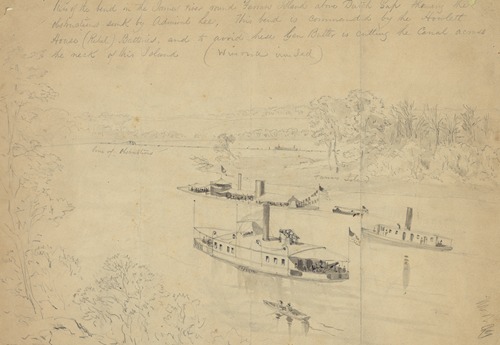 the bend in the James river round Farrar's Island above Dutch Gap showing the
obstructions sunk by Admiral Lee. This bend is commanded by the Howlett
House (Rebel) Batteries, and to avoid these Gen Butler is cutting the Canal across
the neck of this Island (
line of obstructions